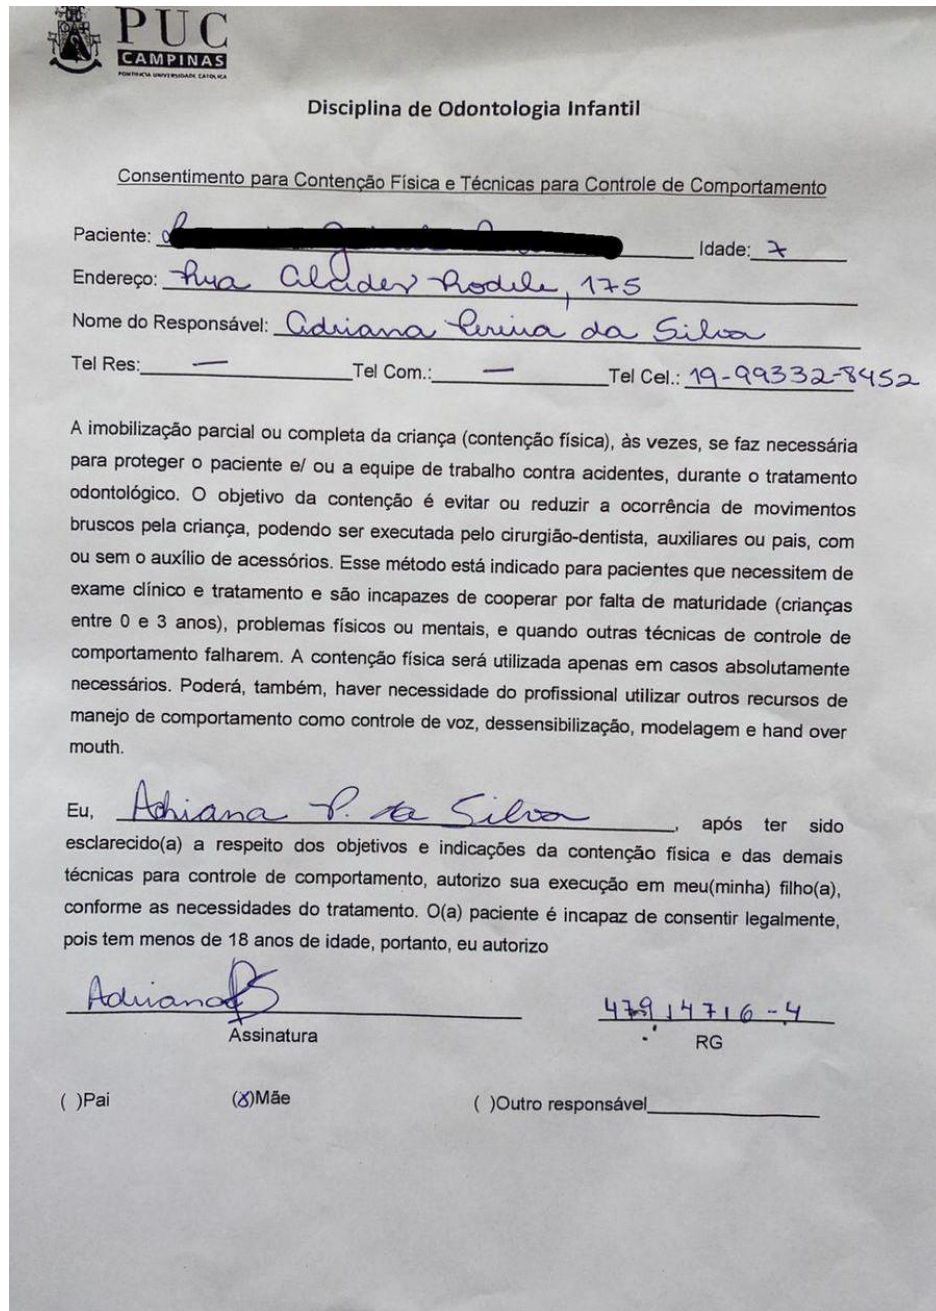 PUC
CAMPINAS
PONTIFÍCIA UNIVERSIDADE CATÓLICA
Disciplina de Odontologia Infantil
Consentimento para Contenção Física e Técnicas para Controle de Comportamento
Paciente: Idade: 7
Endereço: Rua Alcides Rodele, 175
Nome do Responsável: Adriana Pereira da Silva
Tel Res: — Tel Com.: — Tel Cel.: 19-99332-8452
A imobilização parcial ou completa da criança (contenção física), às vezes, se faz necessária
para proteger o paciente e/ ou a equipe de trabalho contra acidentes, durante o tratamento
odontológico. O objetivo da contenção é evitar ou reduzir a ocorrência de movimentos
bruscos pela criança, podendo ser executada pelo cirurgião-dentista, auxiliares ou pais, com
ou sem o auxílio de acessórios. Esse método está indicado para pacientes que necessitem de
exame clínico e tratamento e são incapazes de cooperar por falta de maturidade (crianças
entre 0 e 3 anos), problemas físicos ou mentais, e quando outras técnicas de controle de
comportamento falharem. A contenção física será utilizada apenas em casos absolutamente
necessários. Poderá, também, haver necessidade do profissional utilizar outros recursos de
manejo de comportamento como controle de voz, dessensibilização, modelagem e hand over
mouth.
Eu, Adriana P. da Silva, após ter sido
esclarecido(a) a respeito dos objetivos e indicações da contenção física e das demais
técnicas para controle de comportamento, autorizo sua execução em meu(minha) filho(a),
conforme as necessidades do tratamento. O(a) paciente é incapaz de consentir legalmente,
pois tem menos de 18 anos de idade, portanto, eu autorizo
Adriana PS 47914716-4
Assinatura RG
( )Pai (X)Mãe ( )Outro responsável